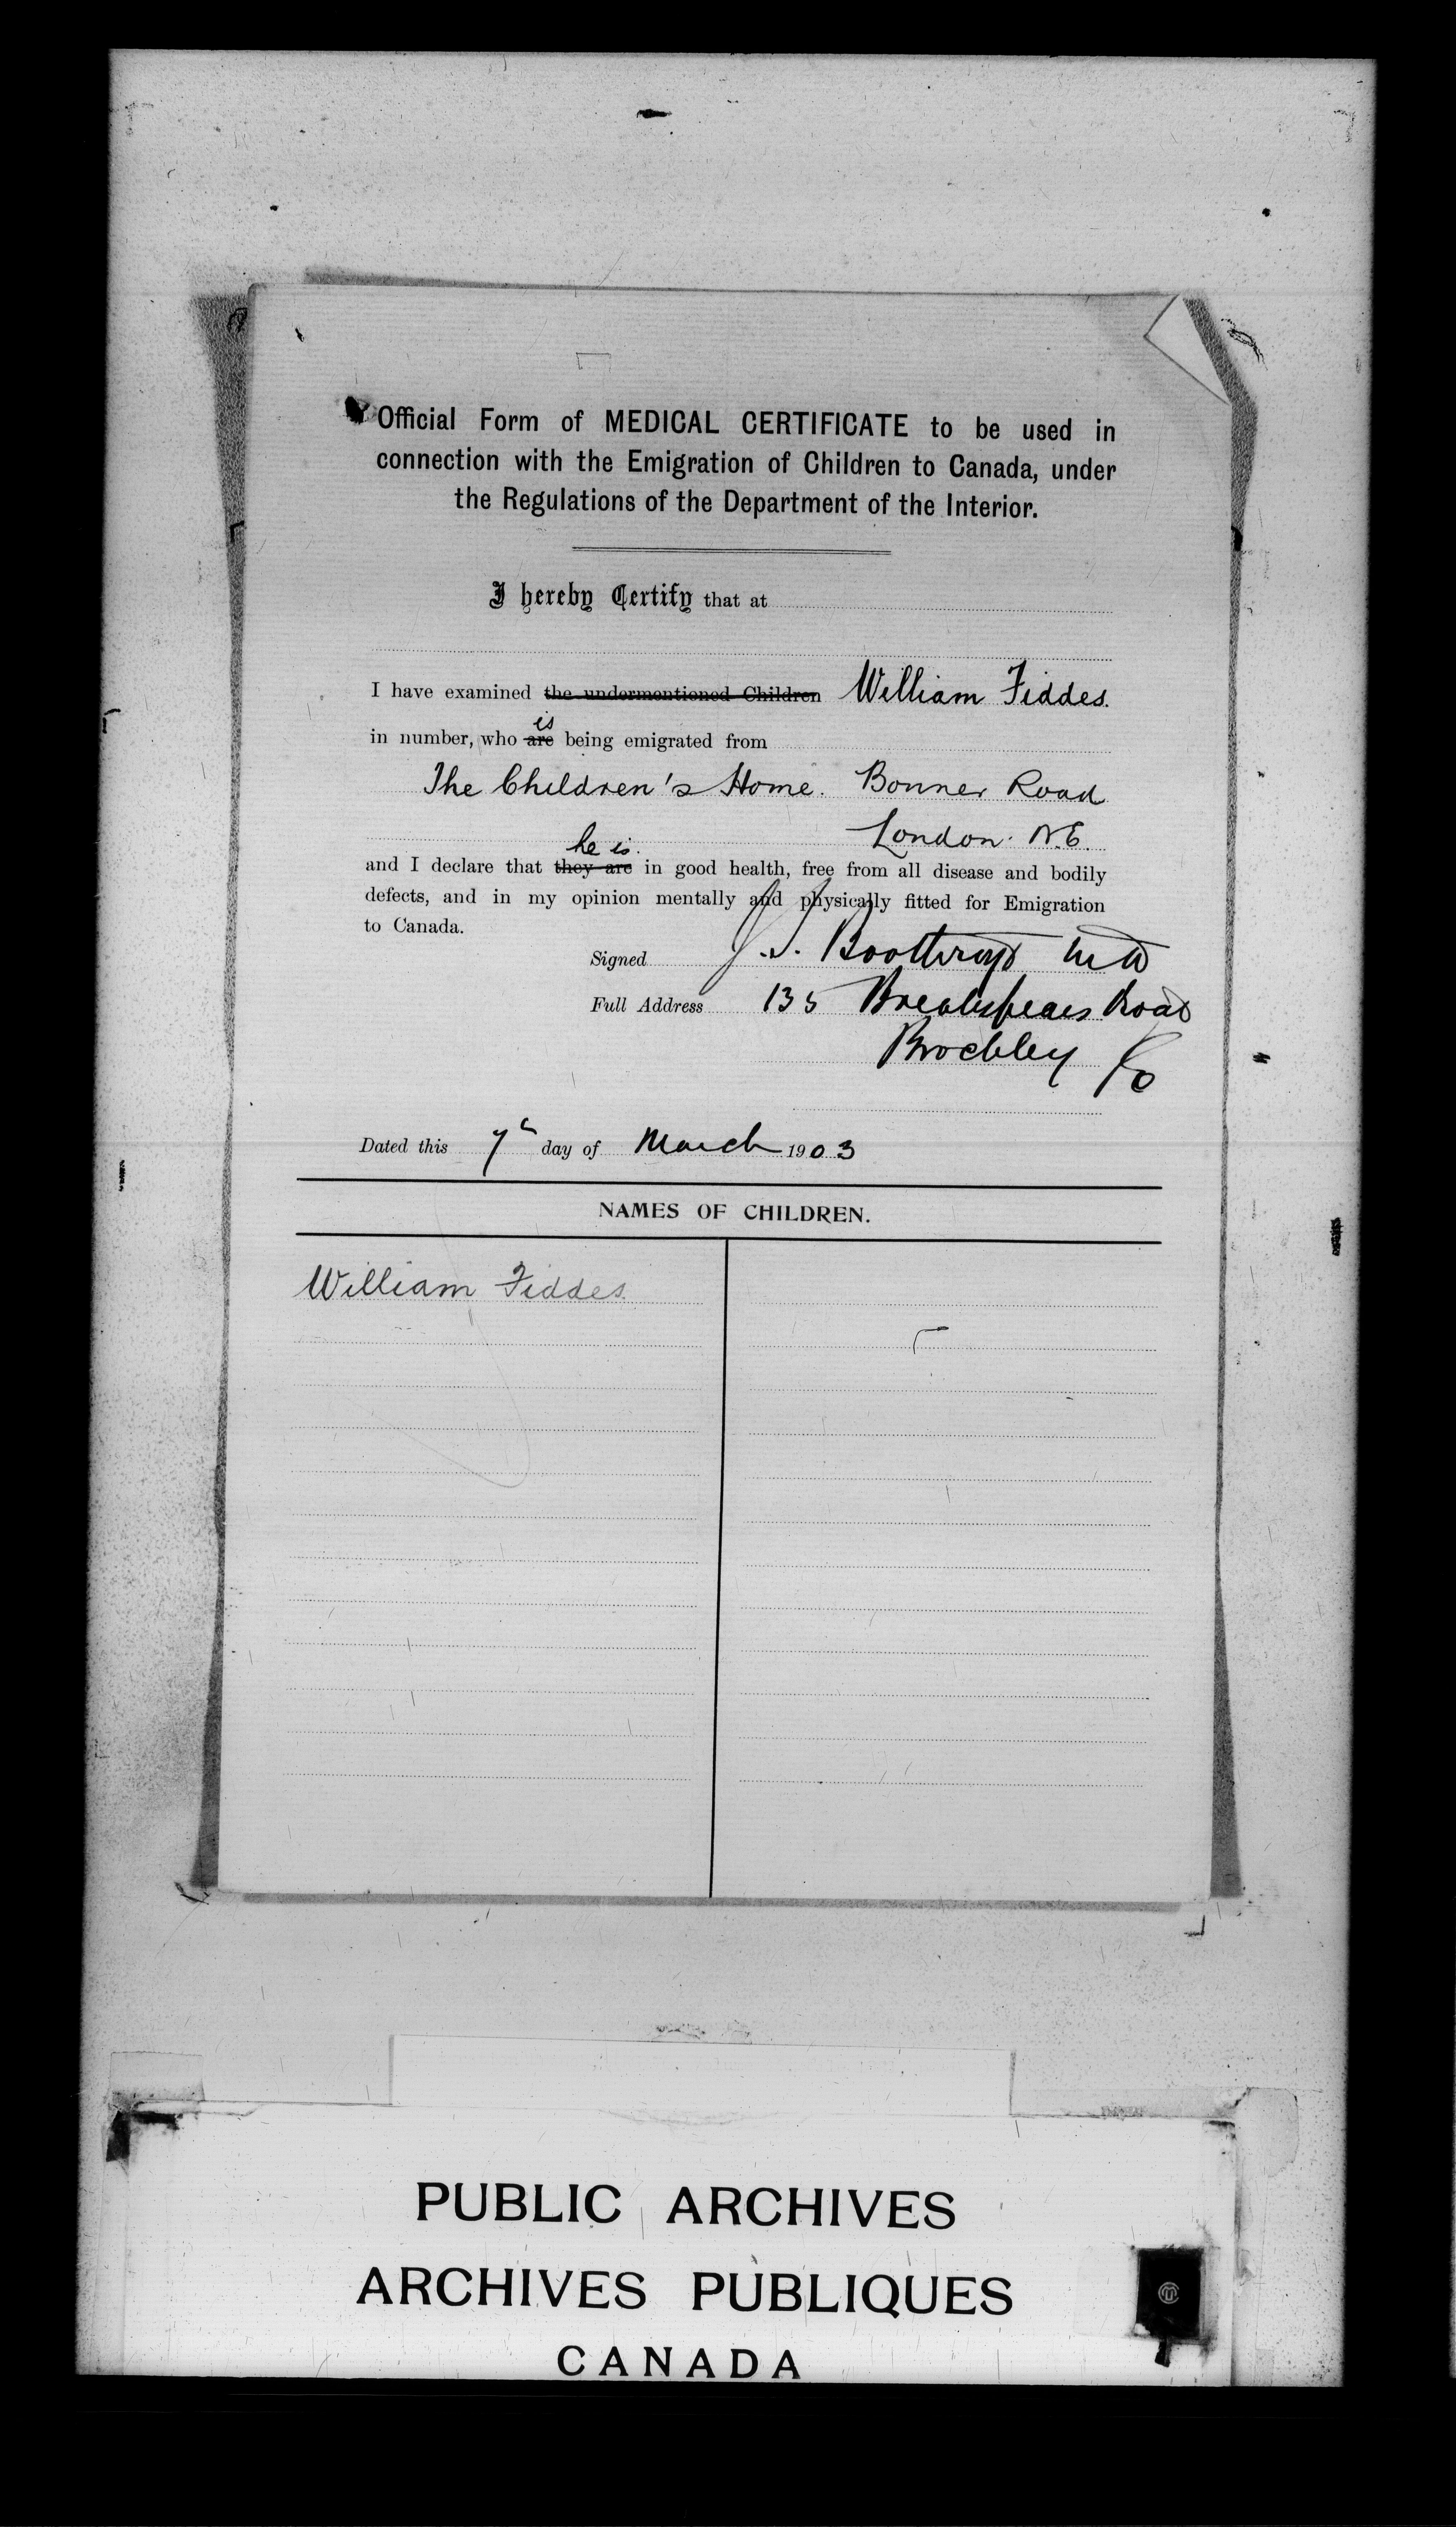 Official Form of MEDICAL CERTIFICATE to be used in
connection with the Emigration of Children to Canada, under
the Regulations of the Department of the Interior.
I hereby Certify that at
I have examined the undermentioned Children William Fiddes.
is
in number, who are being emigrated from
The Children's Home. Bonner Road
London. N.E.
he is.
and I declare that they are in good health, free from all disease and bodily
defects, and in my opinion mentally and physically fitted for Emigration
to Canada.
Signed J. J. Boothroyd MD
Full Address 135 Breakspears Road
Brockley
Dated this 7th day of March 1903
NAMES OF CHILDREN.
William Fiddes.
PUBLIC ARCHIVES
ARCHIVES PUBLIQUES
CANADA